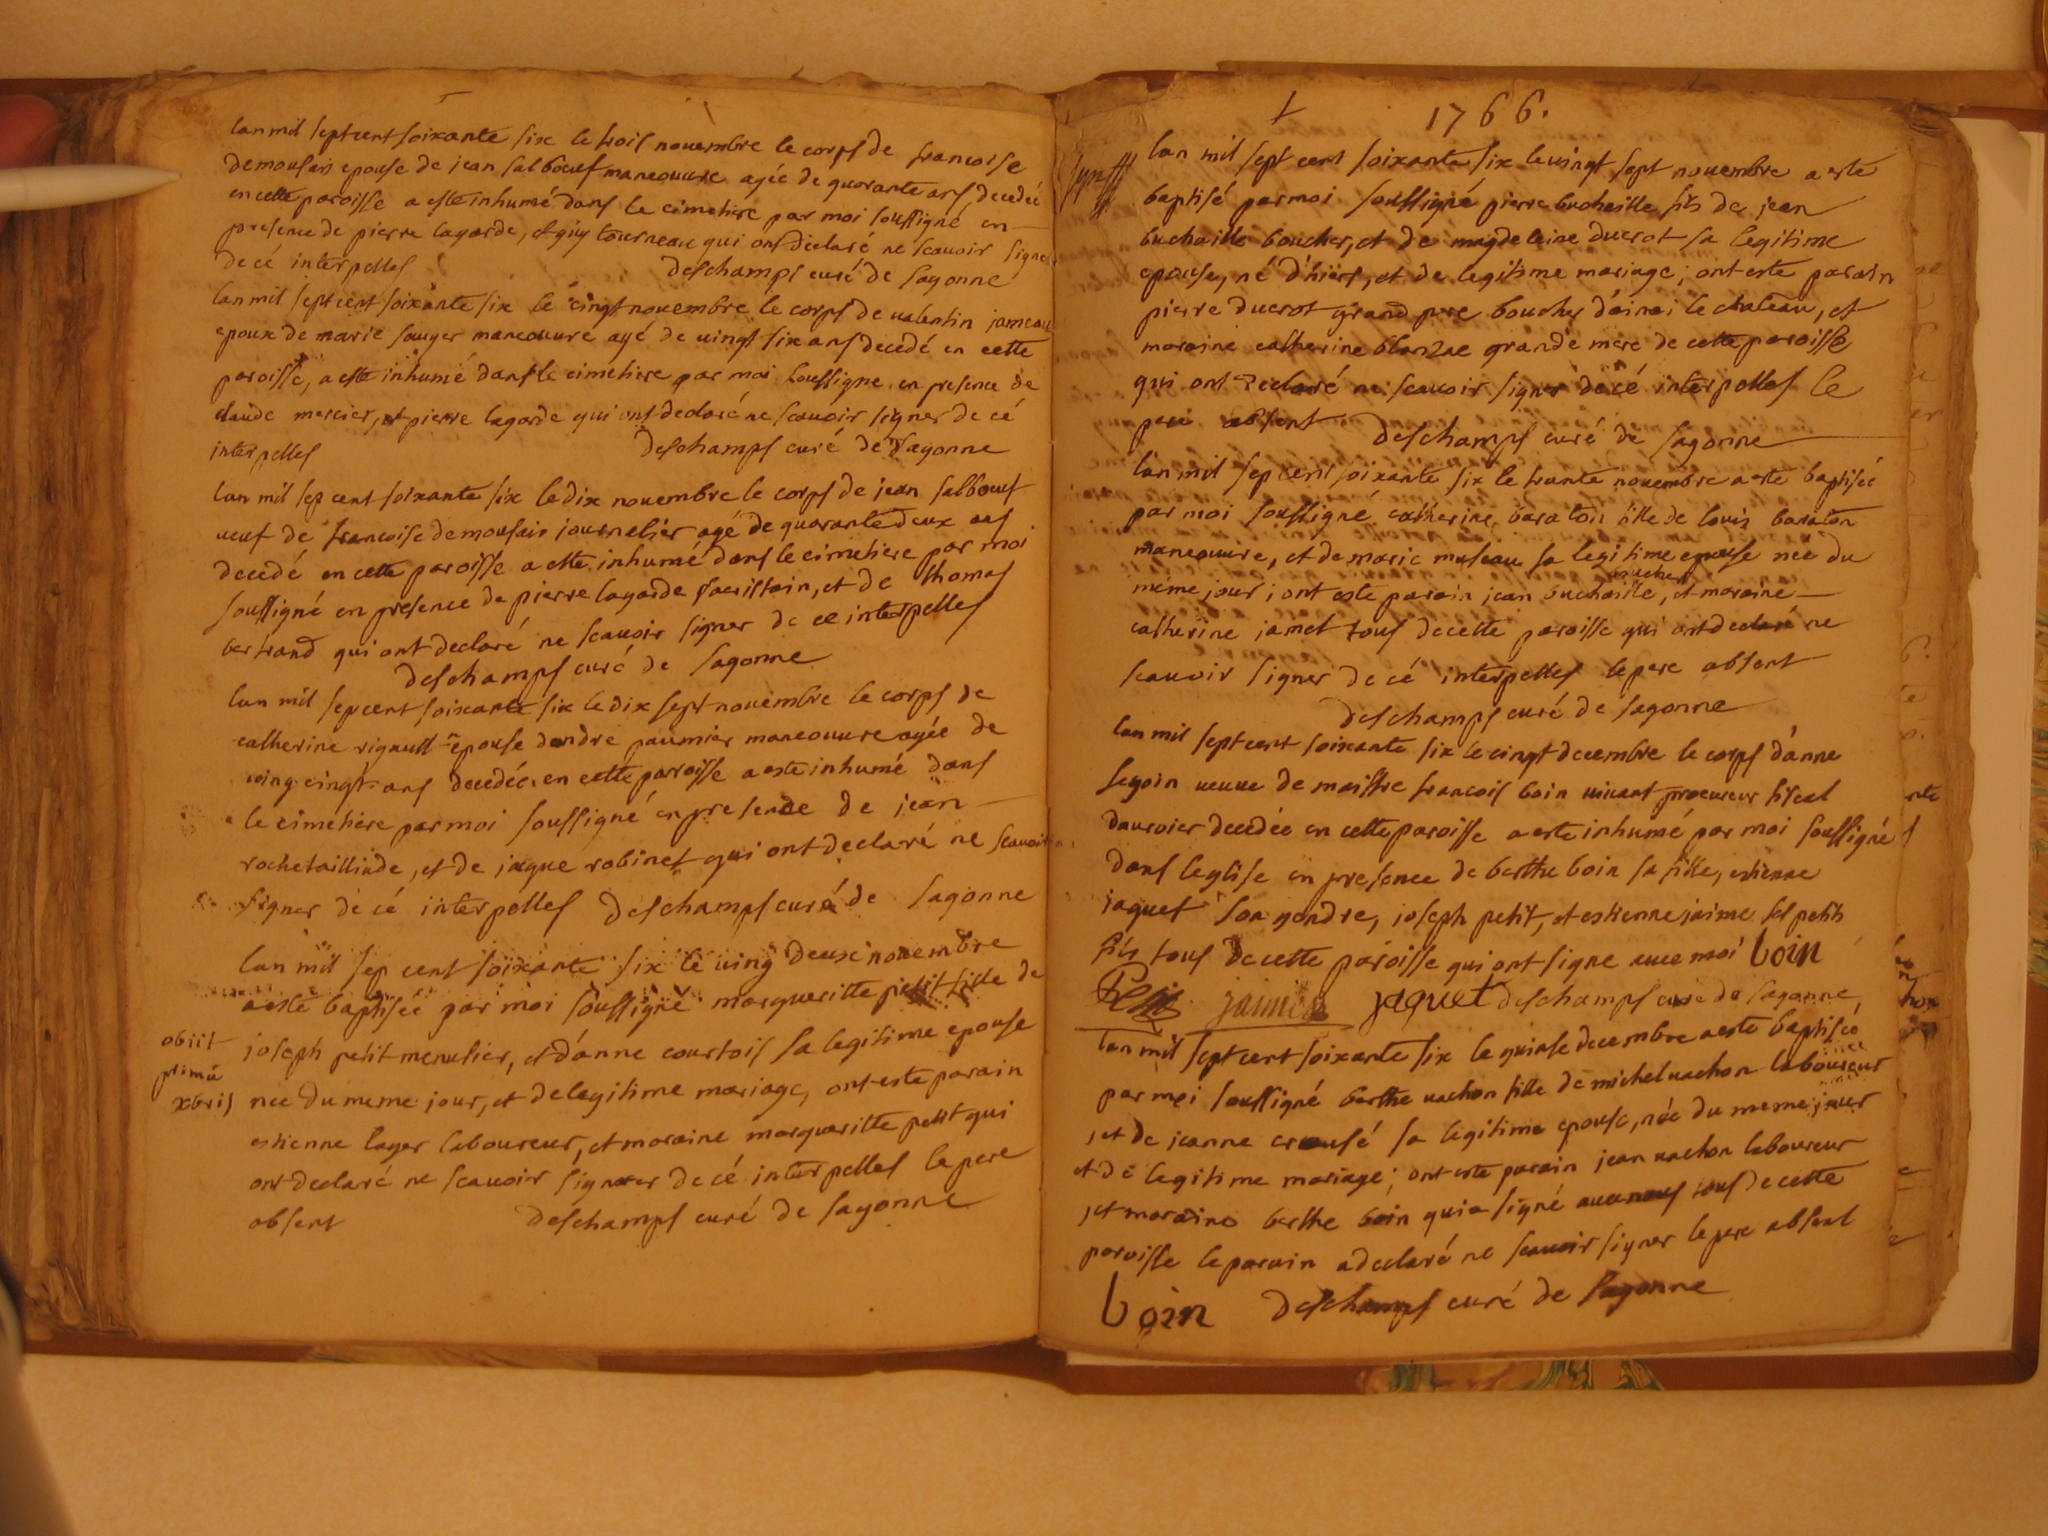 lan mil sept cent soixante six le trois novembre le corps de francoise
demousais epouse de jean salboeuf maneouvre agée de quarante ans, decedeé
en cette paroisse a esté inhumé dans le cimetiere par moi soussigné en
presence de pierre lagarde, et guy tourneau qui ont declaré ne scavoir signer
de cé interpelles deschamps curé de sagonne
lan mil sept cent soixante six le cinqt novembre le corps de valentin jameau
epoux de marie sauger maneouvre agé de vingt six ans decedé en cette
paroisse, a esté inhumé dans le cimetiere par moi soussigne en presence de
claude mercier, et pierre lagarde qui ont declaré ne scavoir signer de cé
interpelles deschamps curé de sagonne
lan mil sep cent soixante six le dix novembre le corps de jean salboeuf
veuf de francoise demousais journalier agé de quarante deux ans
decedé en cette paroisse a esté inhumé dans le cimetiere par moi
soussigné en presence de pierre lagarde sacristain, et de thomas
bertrand qui ont declaré ne scavoir signer de ce interpelles
deschamps curé de sagonne
lan mil sep cent soixante six le dix sept novembre le corps de
catherine rignault epouse dandre paumier maneouvre agée de
ving cinqt ans decedée en cette paroisse a esté inhumé dans
le cimetiere par moi soussigné en presence de jean
rochetaillade, et de jaque robinet qui ont declaré ne scavoir
signer de cé interpelles deschamps curé de sagonne
lan mil sep cent soixante six le ving deux novembre
a esté baptisée par moi soussigné margueritte petit fille de
obiit
prima
xbris
joseph petit menusier, et d'anne courtois sa legitime epouse
neé du meme jour, et de legitime mariage, ont esté parain
estienne lager laboureur, et maraine margueritte petit qui
ont declaré ne scavoir signer de cé interpelles le pere
absent deschamps curé de sagonne
1766.
lan mil sept cent soixante six le vingt sept novembre a esté
baptisé par moi soussigné pierre buchaille fils de jean
buchaille boucher, et de magdeleine ducrot sa legitime
epouse, né d'hiers, et de legitime mariage; ont esté parain
pierre ducrot grand pere boucher d'ainai le chateau, et
maraine catherine blanzac grande mere de cette paroisse
qui ont declaré ne scavoir signer de cé interpelles le
pere absent deschamps curé de sagonne
lan mil sep cent soixante six le trante novembre a esté baptisée
par moi soussigné catherine baraton fille de louis baraton
maneouvre, et de marie museau sa legitime epouse neé du
boucher
méme jour; ont esté parain jean buchaille, et maraine
catherine jamet tous de cette paroisse qui ont declaré ne
scavoir signer de cé interpelles le pere absent
deschamps curé de sagonne
lan mil sept cent soixante six le cinqt decembre le corps d'anne
segoin veuve de maistre francois boin vivant procureur fiscal
decedée en cette paroisse a esté inhumé par moi soussigné
dans leglise en presence de berthe boin sa fille, estienne
jaquet son gendre, joseph petit, et estienne jaime ses petits
fils tous de cette paroisse qui ont signe avec moi boin
Petit jaimes jaquet deschamps curé de sagonne
lan mil sept cent soixante six le quinse decembre a esté baptisée
par moi soussigné berthe vachon fille de michel vachon laboureur
et de jeanne creusé sa legitime epouse, née du meme jour
et de legitime mariage; ont esté parain jean vachon laboureur
et maraine berthe boin qui a signé avec nous tous de cette
paroisse le parain a declaré ne scavoir signer le pere absent
boin deschamps curé de sagonne